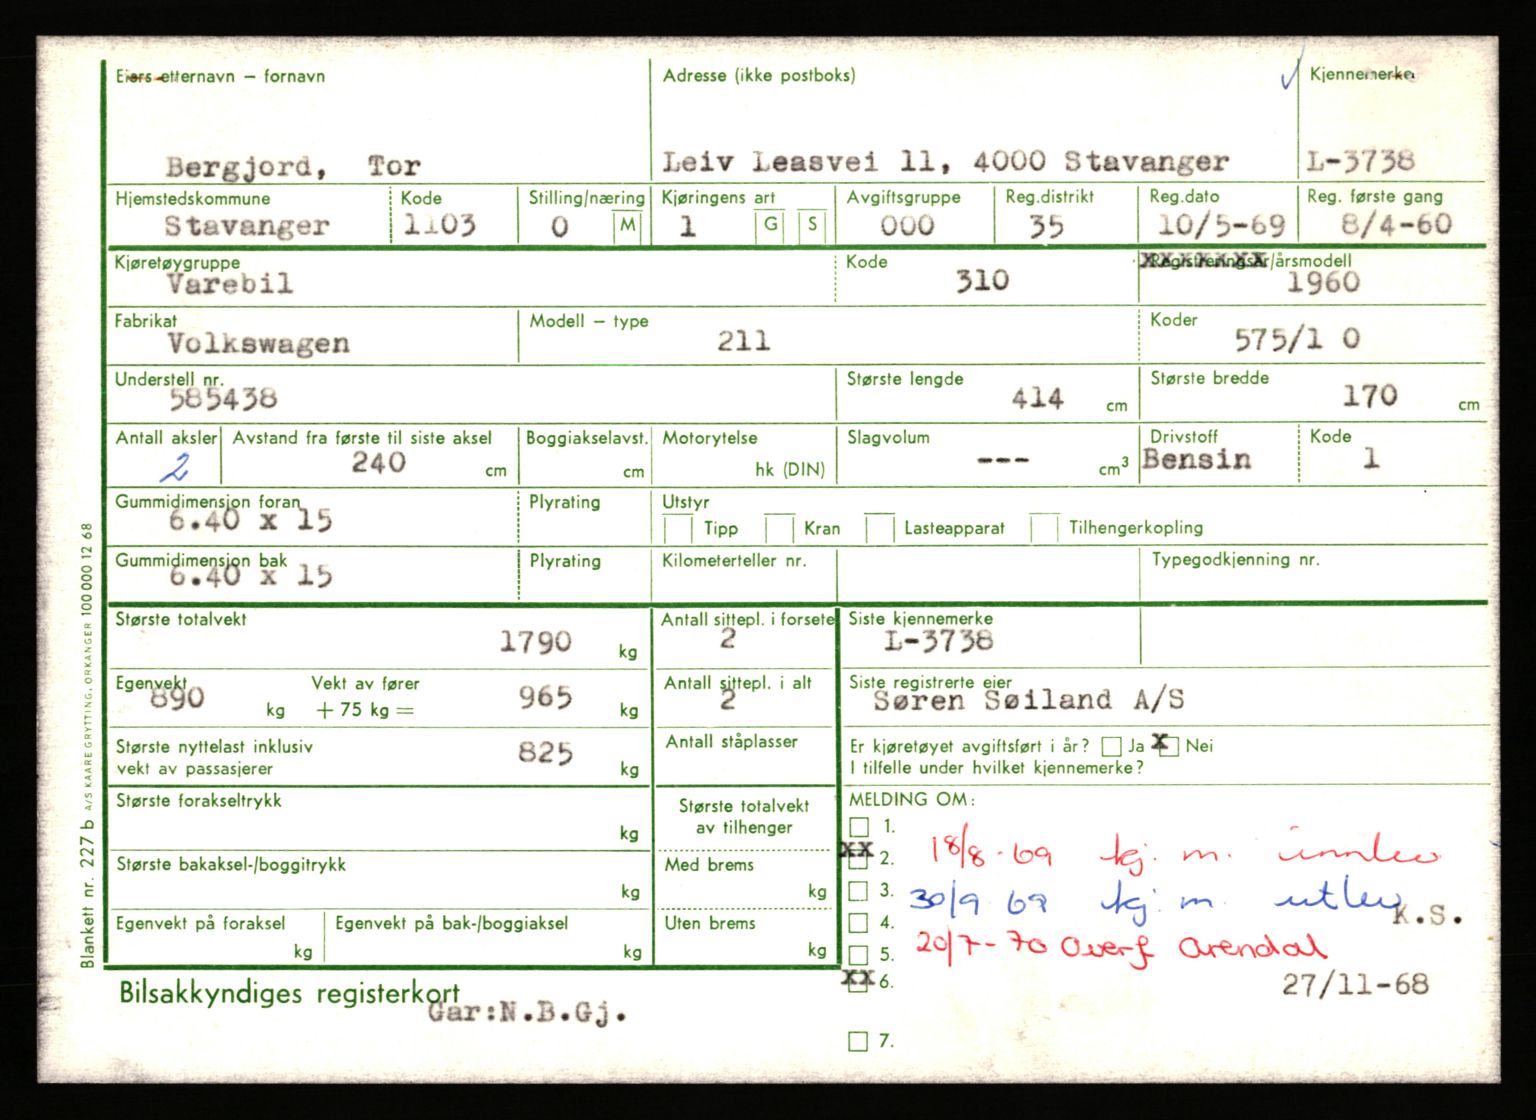 Eiers etternavn – fornavn Adresse (ikke postboks) Kjennemerke
Bergjord, Tor Leiv Leasvei 11, 4000 Stavanger L-3738
Hjemstedskommune Kode Stilling/næring Kjøringens art Avgiftsgruppe Reg.distrikt Reg.dato Reg. første gang
Stavanger 1103 0 M 1 G S 000 35 10/5-69 8/4-60
Kjøretøygruppe Kode Registreringsår/årsmodell
Varebil 310 1960
Fabrikat Modell – type Koder
Volkswagen 211 575/1 0
Understell nr. Største lengde Største bredde
585438 414 cm 170 cm
Antall aksler Avstand fra første til siste aksel Boggiakselavst. Motorytelse Slagvolum Drivstoff Kode
2 240 cm cm hk (DIN) --- cm³ Bensin 1
Gummidimensjon foran Plyrating Utstyr
6.40 x 15 Tipp Kran Lasteapparat Tilhengerkopling
Gummidimensjon bak Plyrating Kilometerteller nr. Typegodkjenning nr.
6.40 x 15
Største totalvekt Antall sittepl. i forsete Siste kjennemerke
1790 kg 2 L-3738
Egenvekt Vekt av fører Antall sittepl. i alt Siste registrerte eier
890 kg + 75 kg = 965 kg 2 Søren Søiland A/S
Største nyttelast inklusiv Antall ståplasser Er kjøretøyet avgiftsført i år? Ja X Nei
vekt av passasjerer 825 kg I tilfelle under hvilket kjennemerke?
Største forakseltrykk Største totalvekt MELDING OM:
kg av tilhenger 1.
Største bakaksel-/boggitrykk Med brems XX 2. 18/8-69 kj. m. innlev
kg kg 3. 30/9 69 kj. m. utlev
Egenvekt på foraksel Egenvekt på bak-/boggiaksel Uten brems 4. K.S.
kg kg kg 5. 20/7-70 Overf Arendal
Bilsakkyndiges registerkort XX 6. 27/11-68
Gar:N.B.Gj.
7.
Blankett nr. 227 b A/S KAARE GRYTTING, ORKANGER 100 000 12 68